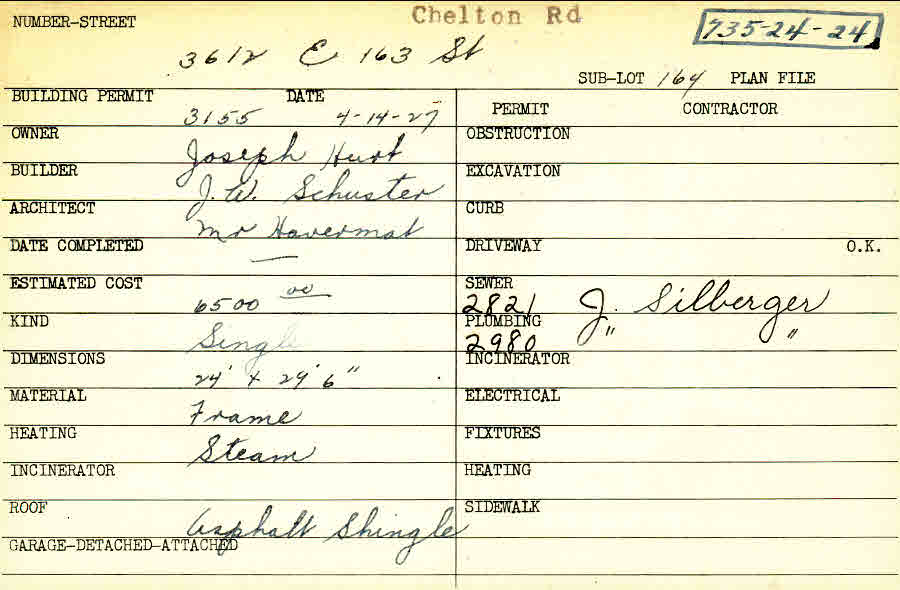 Chelton Rd
NUMBER-STREET 735-24-24
3612 E 163 St
SUB-LOT 164 PLAN FILE
BUILDING PERMIT 3155 DATE 4-14-27
PERMIT CONTRACTOR
OWNER Joseph Hurt
OBSTRUCTION
BUILDER J. W. Schuster
EXCAVATION
ARCHITECT Mr Havermat
CURB
DATE COMPLETED —
DRIVEWAY O.K.
ESTIMATED COST 6500 00
SEWER 2821 J. Silberger
KIND Single
PLUMBING 2980 " "
DIMENSIONS 24' x 29' 6"
INCINERATOR
MATERIAL Frame
ELECTRICAL
HEATING Steam
FIXTURES
INCINERATOR
HEATING
ROOF Asphalt Shingle
SIDEWALK
GARAGE-DETACHED-ATTACHED